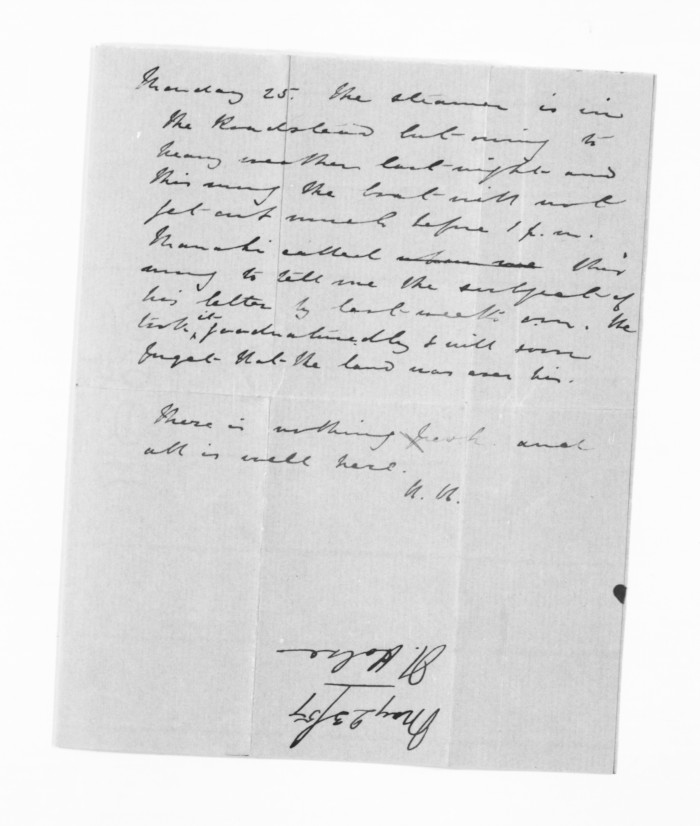 Monday 25. The steamer is in
the Roadstead but owing to
heavy weather last night and
this morng the boat will not
get out much before 1 p.m.
Manahi called this
morng to tell me the subject of
his letter by last week's . He
took it goodnaturedly & will soon
forget that the land was ever his.
There is nothing fresh and
all is well here.
H. H.
H. Halse
May 23/57